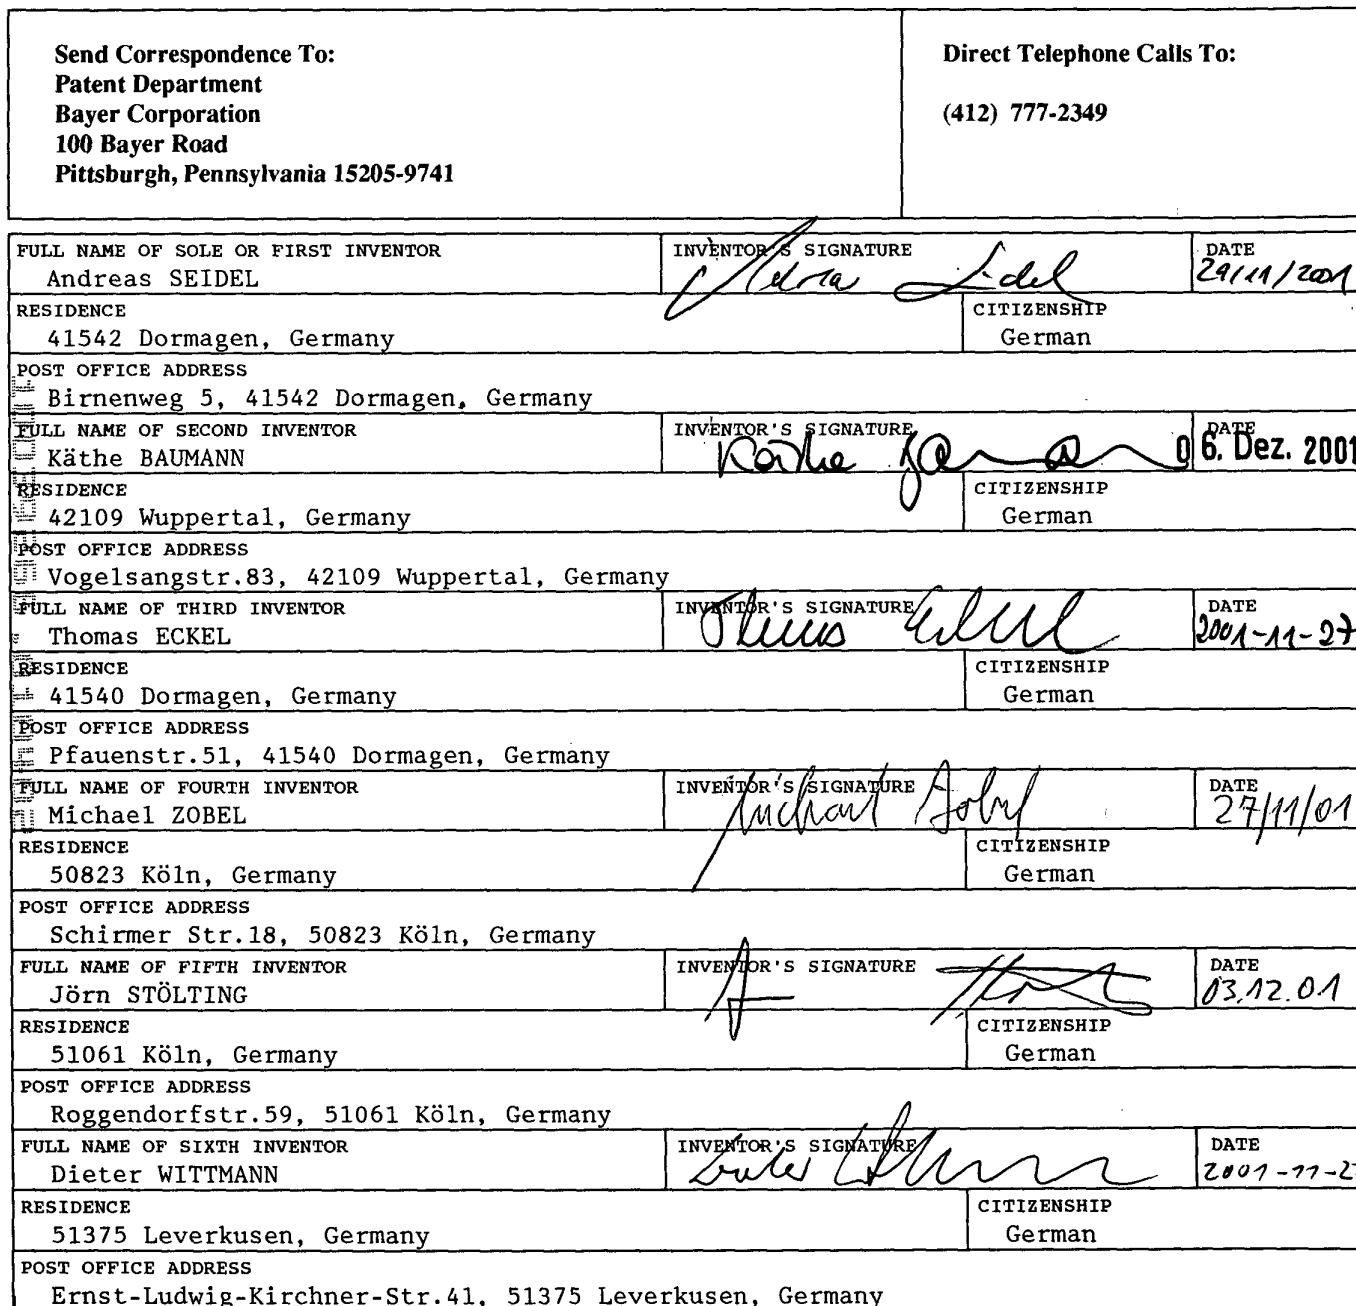 Send Correspondence To:
Patent Department
Bayer Corporation
100 Bayer Road
Pittsburgh, Pennsylvania 15205-9741
Direct Telephone Calls To:
(412) 777-2349
FULL NAME OF SOLE OR FIRST INVENTOR
Andreas SEIDEL
INVENTOR'S SIGNATURE
DATE
29/11/2001
RESIDENCE
41542 Dormagen, Germany
CITIZENSHIP
German
POST OFFICE ADDRESS
Birnenweg 5, 41542 Dormagen, Germany
FULL NAME OF SECOND INVENTOR
Käthe BAUMANN
INVENTOR'S SIGNATURE
Käthe
DATE
06. Dez. 2001
RESIDENCE
42109 Wuppertal, Germany
CITIZENSHIP
German
POST OFFICE ADDRESS
Vogelsangstr.83, 42109 Wuppertal, Germany
FULL NAME OF THIRD INVENTOR
Thomas ECKEL
INVENTOR'S SIGNATURE
Thomas Eckel
DATE
2001-11-27
RESIDENCE
41540 Dormagen, Germany
CITIZENSHIP
German
POST OFFICE ADDRESS
Pfauenstr.51, 41540 Dormagen, Germany
FULL NAME OF FOURTH INVENTOR
Michael ZOBEL
INVENTOR'S SIGNATURE
Michael Zobel
DATE
27/11/01
RESIDENCE
50823 Köln, Germany
CITIZENSHIP
German
POST OFFICE ADDRESS
Schirmer Str.18, 50823 Köln, Germany
FULL NAME OF FIFTH INVENTOR
Jörn STÖLTING
INVENTOR'S SIGNATURE
DATE
03.12.01
RESIDENCE
51061 Köln, Germany
CITIZENSHIP
German
POST OFFICE ADDRESS
Roggendorfstr.59, 51061 Köln, Germany
FULL NAME OF SIXTH INVENTOR
Dieter WITTMANN
INVENTOR'S SIGNATURE
DATE
2001-11-2
RESIDENCE
51375 Leverkusen, Germany
CITIZENSHIP
German
POST OFFICE ADDRESS
Ernst-Ludwig-Kirchner-Str.41, 51375 Leverkusen, Germany